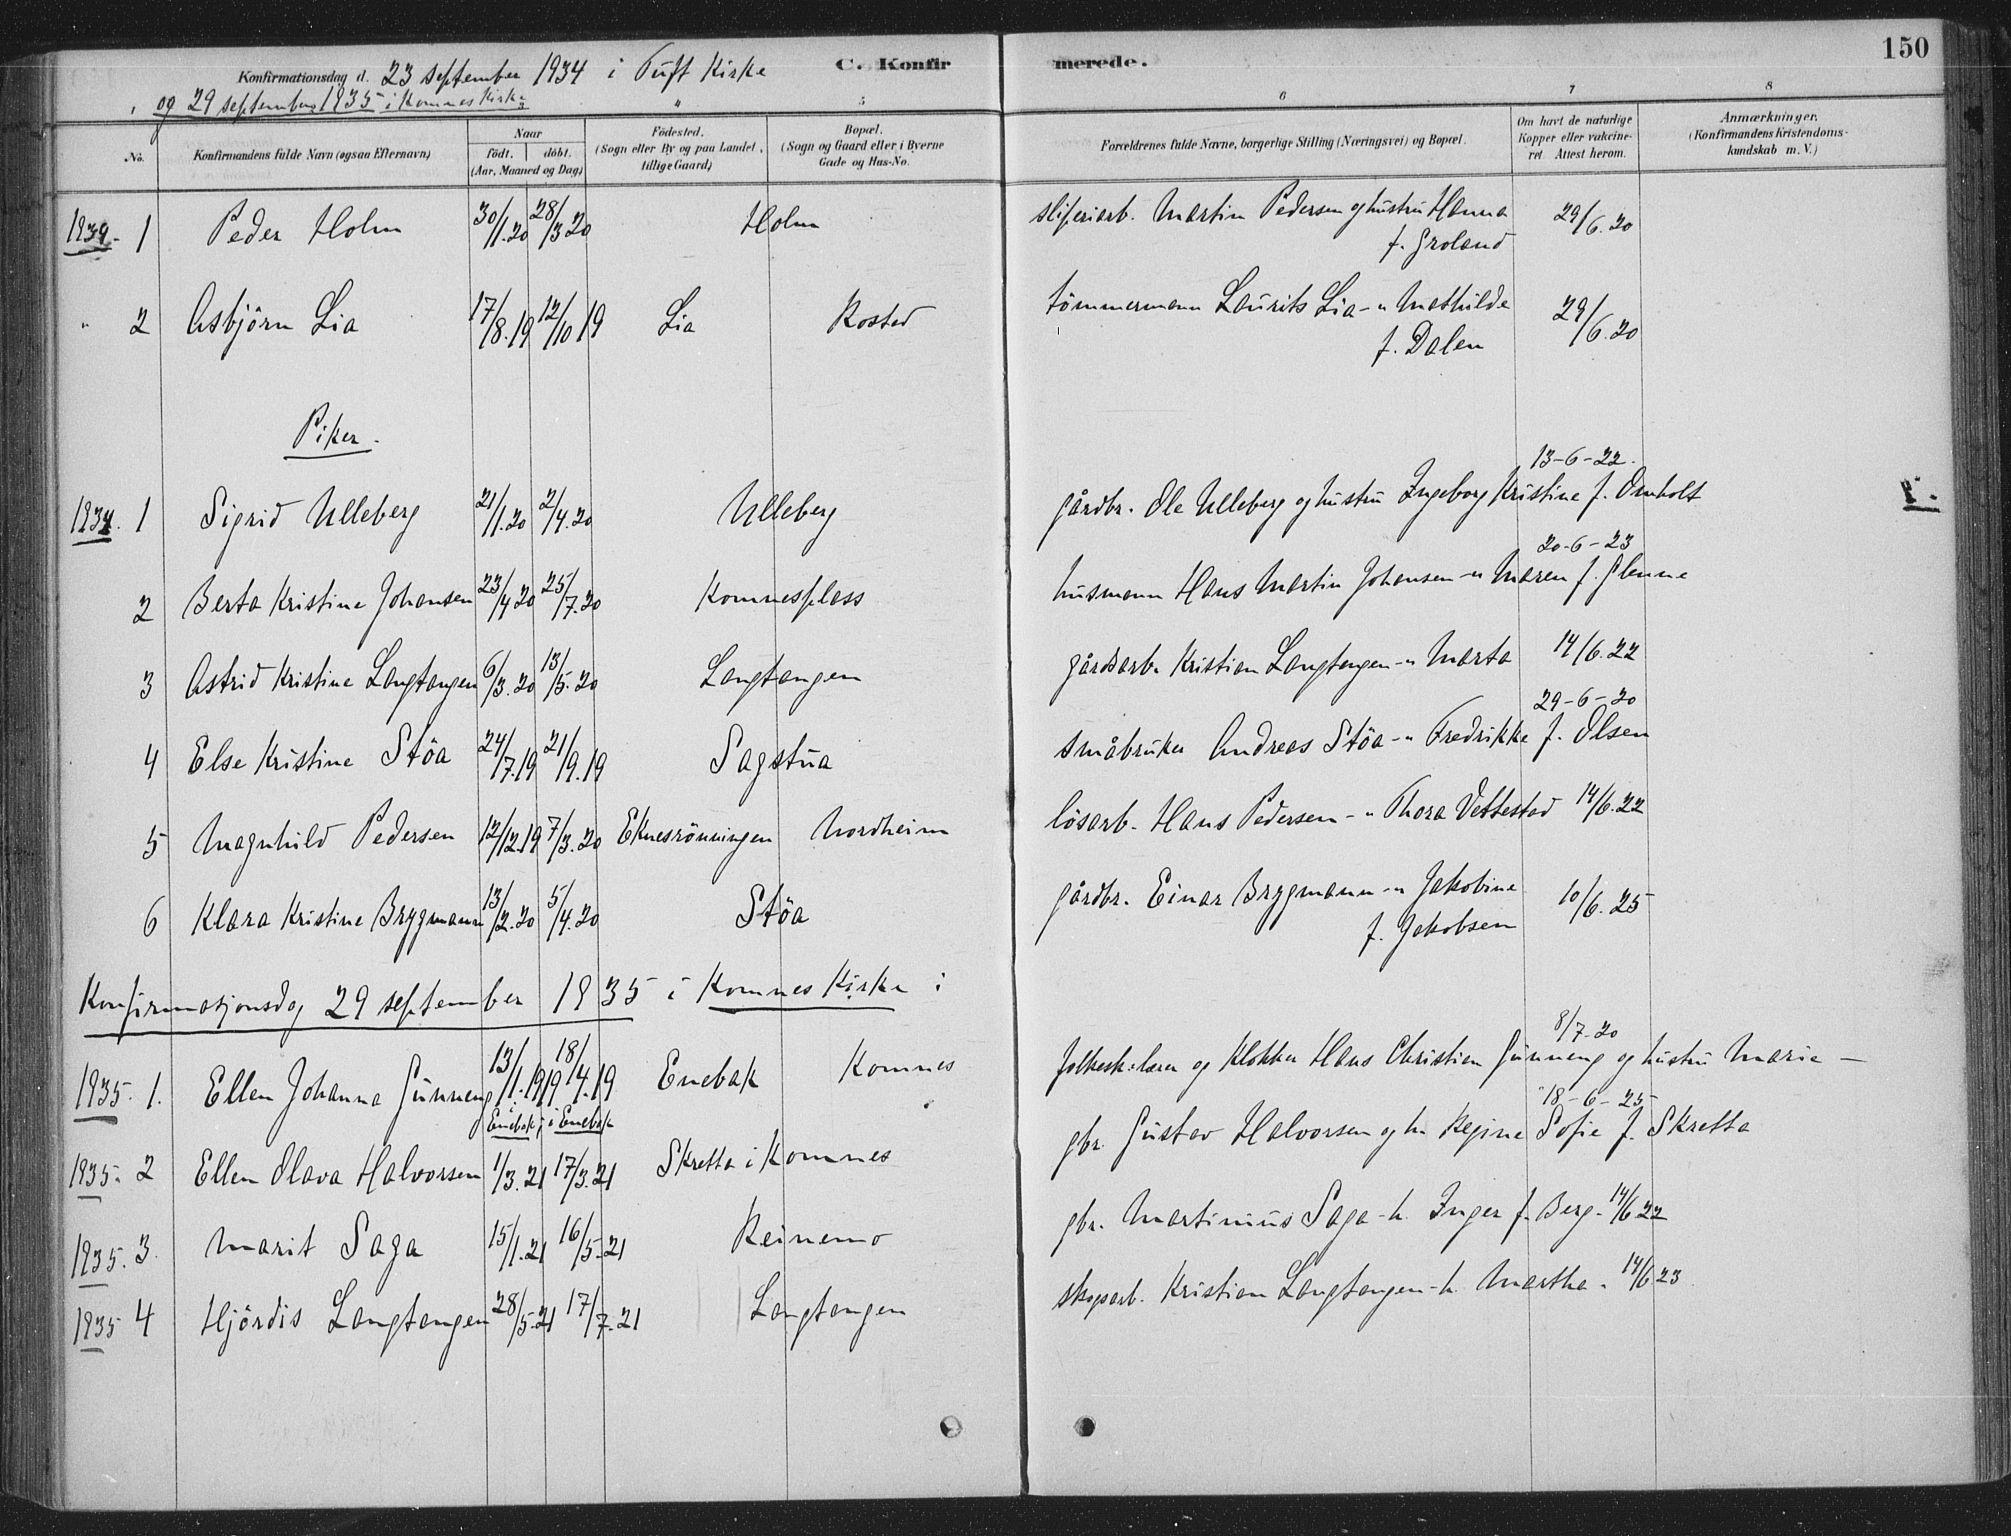 150
Konfirmationsdag d. 23 september 1934 i Tuft Kirke C. Konfirmerede.
og 29 september 1935 i Komnes Kirke
4 5 6 7 8
No. Konfirmandens fulde Navn (ogsaa Efternavn) Naar født. døbt. (Aar, Maaned og Dag) Fødested. (Sogn eller By og paa Landet, tillige Gaard) Bopæl. (Sogn og Gaard eller i Byerne Gade og Hus-No. Forældrenes fulde Navne, borgerlige Stilling (Næringsvei) og Bopæl. Om havt de naturlige Kopper eller vakcineret Attest herom. Anmærkninger. (Konfirmandens Kristendomskundskab m. V.)
1934. 1 Peder Holm 30/1.20 28/3 20 Holm sliperiarb. Martin Pedersen og hustru Hanna f. Groland 29/6.20
" 2 Asbjörn Lia 17/8.19 12/10 19 Lia Rosted tömmermann Laurits Lia - " Mathilde f. Dalen 29/6.20
Piker.
1934. 1 Sigrid Ulleberg 21/1.20 2/4.20 Ulleberg gårdbr. Ole Ulleberg og hustru Ingeborg Kristine f. Omholt 13-6-22.
2 Berta Kristine Johansen 23/4 20 25/7.20 Komnesplass husmann Hans Martin Johansen - " Maren f. Glenne 20-6-23
3 Astrid Kristine Langtangen 6/3.20 13/5.20 Langtangen gårdsarb. Kristian Langtangen - " Marta 14/6.22
4 Else Kristine Stöa 24/7.19 21/9.19 Sagstua småbruker Andreas Stöa - " Fredrikke f. Olsen 29-6-20
5 Magnhild Pedersen 12/12.19 7/3.20 Eknesrönningen Nordheim lösarb. Hans Pedersen - " Thora Vettestad 14/6.22
6 Klara Kristine Brygmann 13/2.20 5/4.20 Stöa gårdbr. Einar Brygmann - " Jakobine f. Jakobsen 10/6.25
Konfirmasjonsdag 29 september 1935 i Komnes Kirke :
1935. 1. Ellen Johanna Gunneng 13/1.1919 18/4.19 i Enebak i Enebak Enebak Komnes folkesk.lærer og Klokker Hans Christian Gunneng og hustru Marie — 8/7-20
1935. 2 Ellen Olava Halvorsen 1/3.21 17/3.21 Skretta i Komnes gbr. Gustav Halvorsen og h. Regine Sofie f. Skretta 18-6-25
1935. 3. Marit Saga 15/1.21 16/5.21 Reinemo gbr. Martinius Saga - h. Inger f. Berg. 14/6 22
1935 4 Hjördis Langtangen 28/5.21 17/7.21 Langtangen skogsarb. Kristian Langtangen - h. Martha. 14/6 23